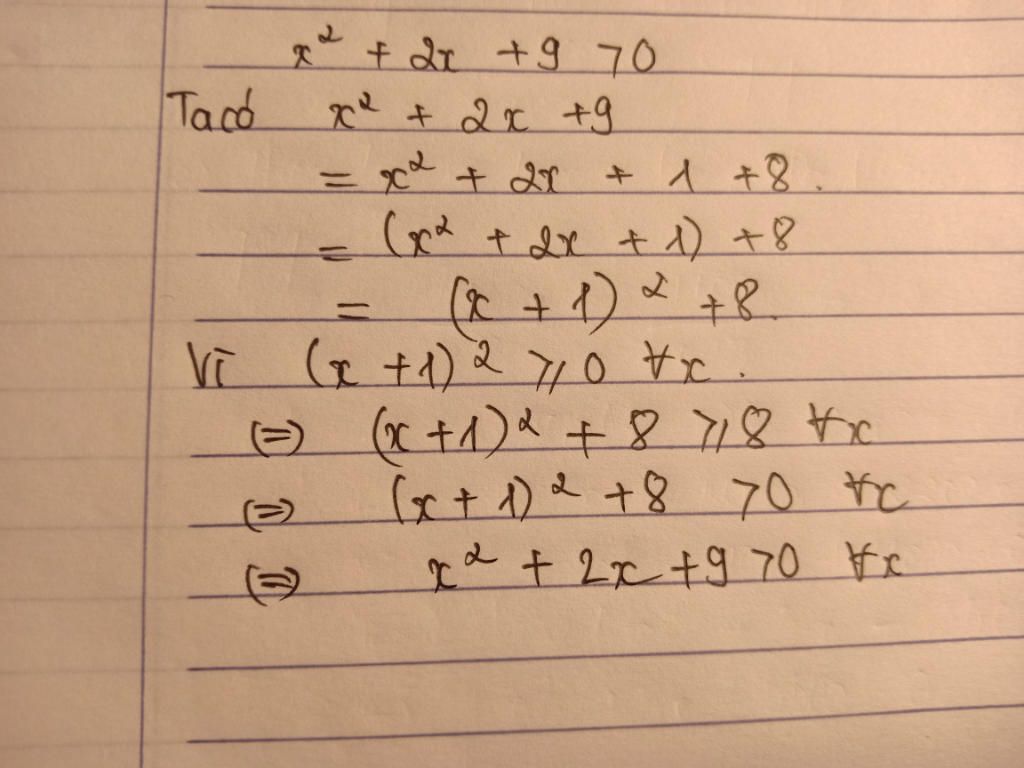 x² + 2x + 9 > 0
Ta có x² + 2x + 9
= x² + 2x + 1 + 8.
= (x² + 2x + 1) + 8
= (x + 1)² + 8.
Vì (x + 1)² ≥ 0 ∀x.
(=) (x + 1)² + 8 ≥ 8 ∀x
(=) (x + 1)² + 8 > 0 ∀x
(=) x² + 2x + 9 > 0 ∀x